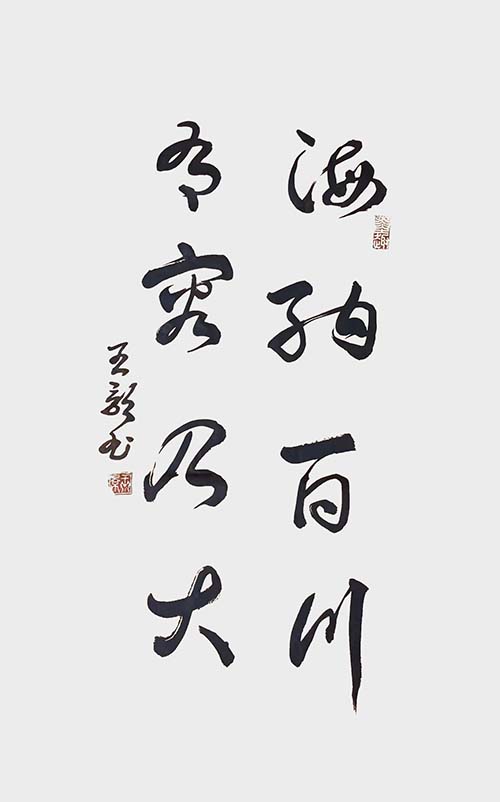 海纳百川
有容乃大
王颖书